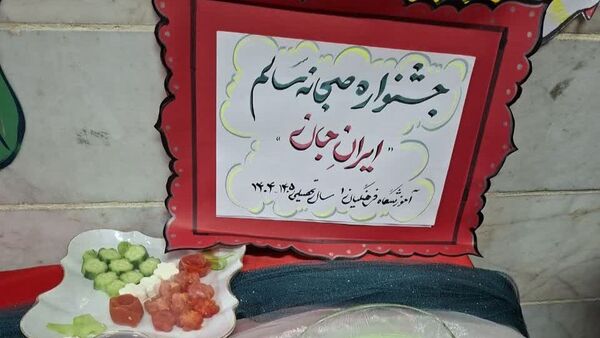 جشنواره صبحانه سالم
"ایران جان"
آموزشگاه فرهنگیان ۱ سال تحصیلی ۱۴۰۵-۱۴۰۴